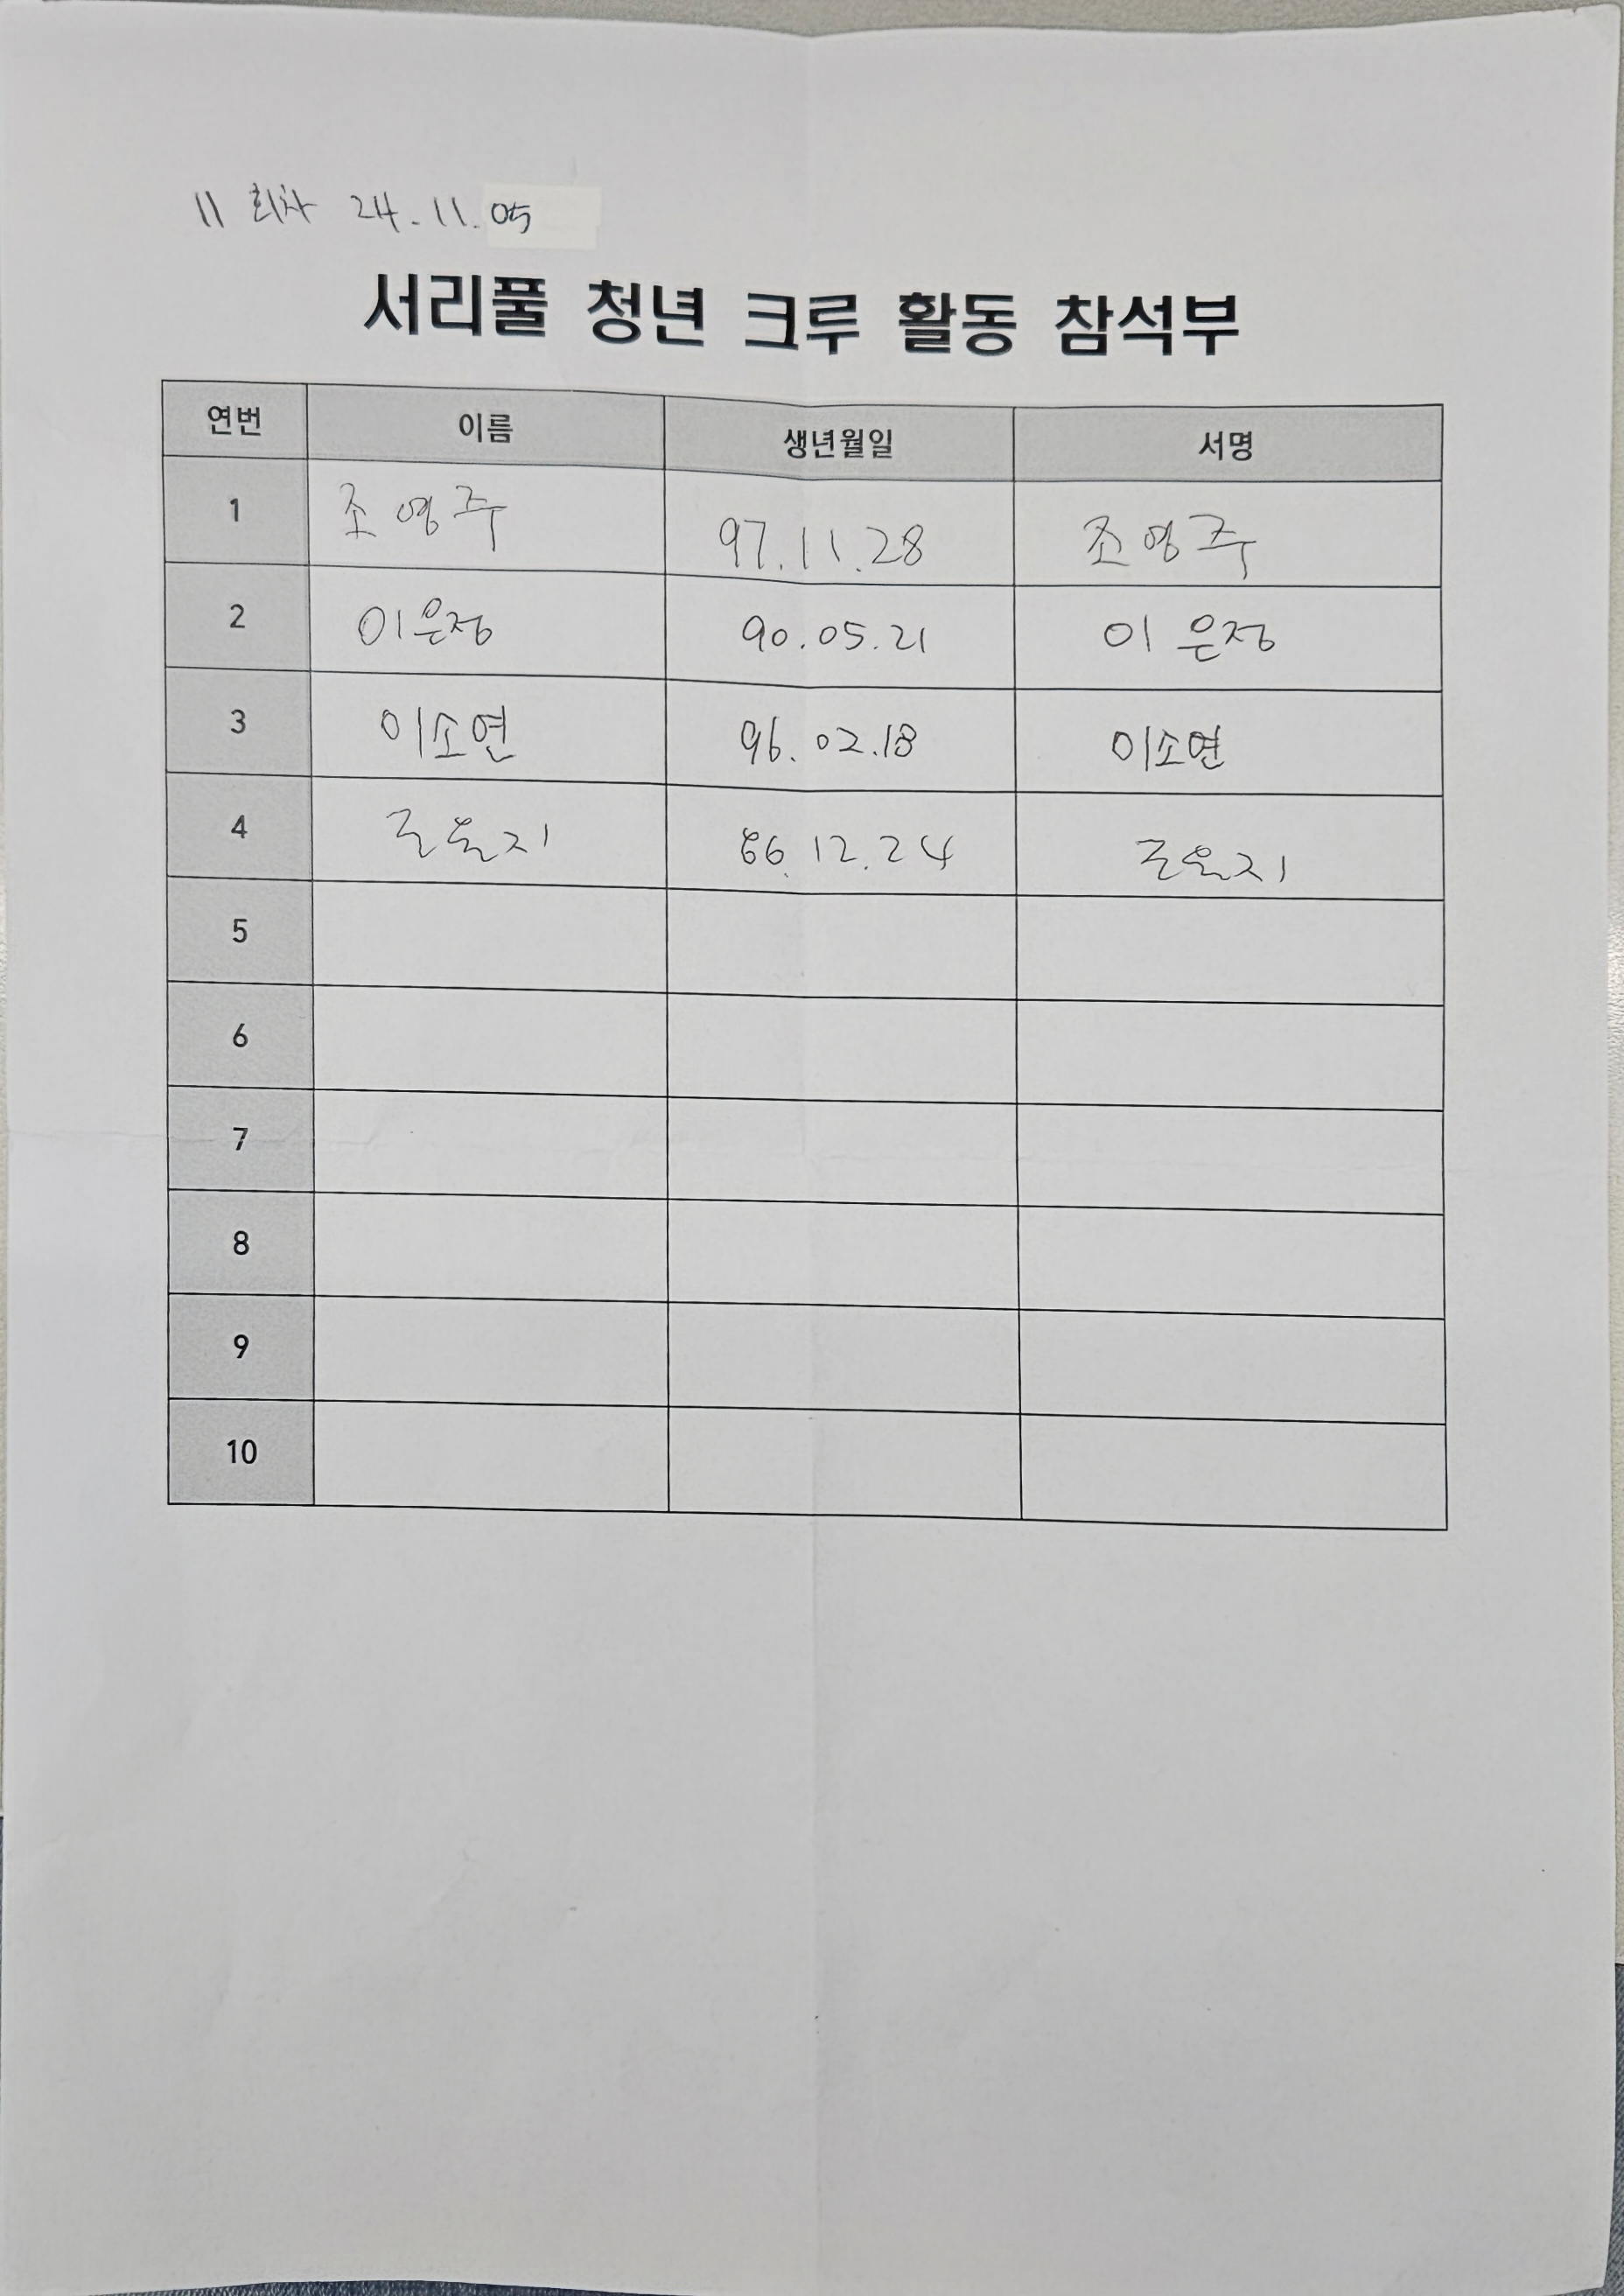 11 회차 24.11.05
서리풀 청년 크루 활동 참석부
연번 이름 생년월일 서명
1 조영주 97.11.28 조영주
2 이은정 90.05.21 이은정
3 이소연 96.02.18 이소연
4 86.12.24
5
6
7
8
9
10